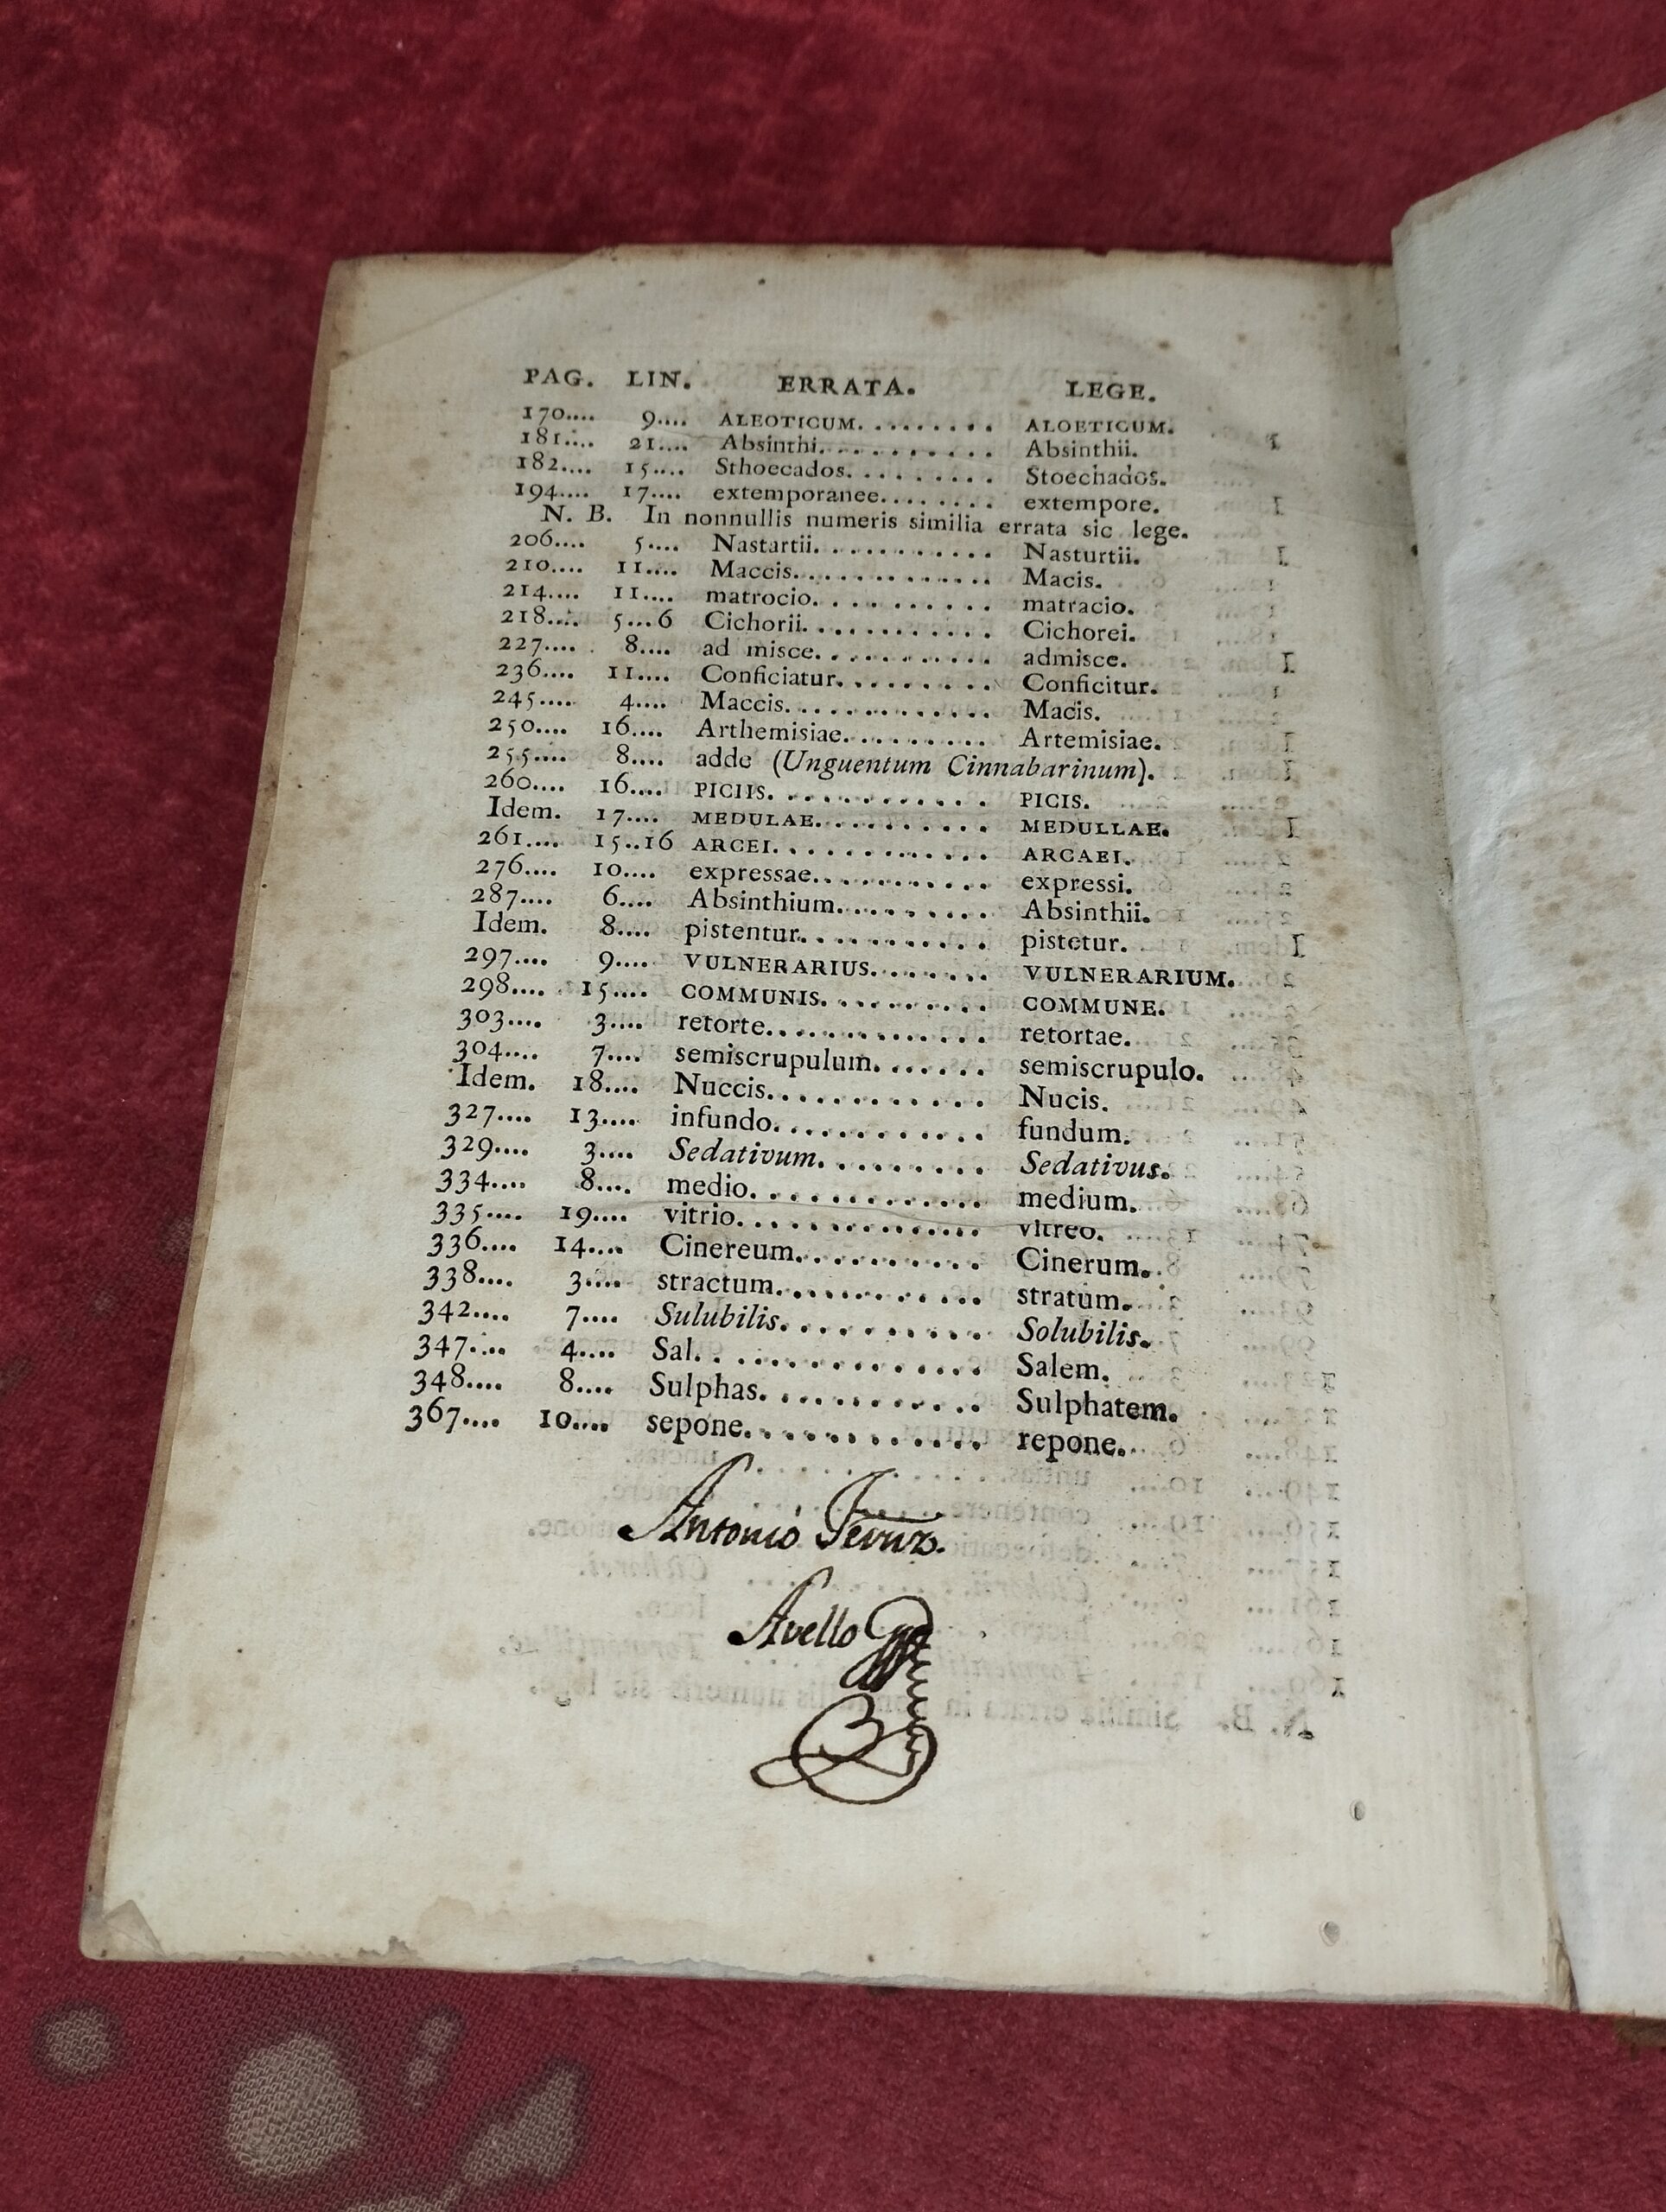 PAG. LIN. ERRATA. LEGE.
170.... 9.... ALEOTICUM. ........ ALOETICUM.
181.... 21.... Absinthi. .......... Absinthii.
182.... 15.... Sthoecados. ........ Stoechados.
194.... 17.... extemporanee. ...... extempore.
N. B. In nonnullis numeris similia errata sic lege.
206.... 5.... Nastartii. .......... Nasturtii.
210.... 11.... Maccis. ............ Macis.
214.... 11.... matrocio. .......... matracio.
218.... 5...6 Cichorii. ........... Cichorei.
227.... 8.... ad misce. .......... admisce.
236.... 11.... Conficiatur. ........ Conficitur.
245.... 4.... Maccis. ............ Macis.
250.... 16.... Arthemisiae. ........ Artemisiae.
255.... 8.... adde (Unguentum Cinnabarinum).
260.... 16.... PICIIS. ............ PICIS.
Idem. 17.... MEDULAE. .......... MEDULLAE.
261.... 15..16 ARCEI. ............ ARCAEI.
276.... 10.... expressae. .......... expressi.
287.... 6.... Absinthium. ........ Absinthii.
Idem. 8.... pistentur. .......... pistetur.
297.... 9.... VULNERARIUS. ...... VULNERARIUM.
298.... 15.... COMMUNIS. ......... COMMUNE.
303.... 3.... retorte. ............ retortae.
304.... 7.... semiscrupulum. ...... semiscrupulo.
Idem. 18.... Nuccis. ............ Nucis.
327.... 13.... infundo. ........... fundum.
329.... 3.... Sedativum. ........ Sedativus.
334.... 8.... medio. ............. medium.
335.... 19.... vitrio. ............. vitreo.
336.... 14.... Cinereum. .......... Cinerum.
338.... 3.... stractum. ........... stratum.
342.... 7.... Sulubilis. .......... Solubilis.
347.... 4.... Sal. .............. Salem.
348.... 8.... Sulphas. ........... Sulphatem.
367.... 10.... sepone. ............ repone.
Antonio
Avello